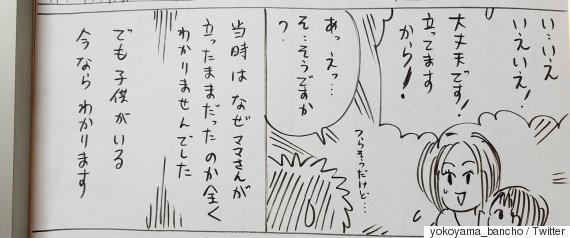 い…いえ
いえいえ!
大丈夫です!
立ってます
から!
あっ えっ…
そ…そうですか
?
つらそうだけど…
当時は なぜ ママさんが
立ったままだったのか全く
わかりませんでした
でも子供がいる
今なら わかります
yokoyama_bancho / Twitter